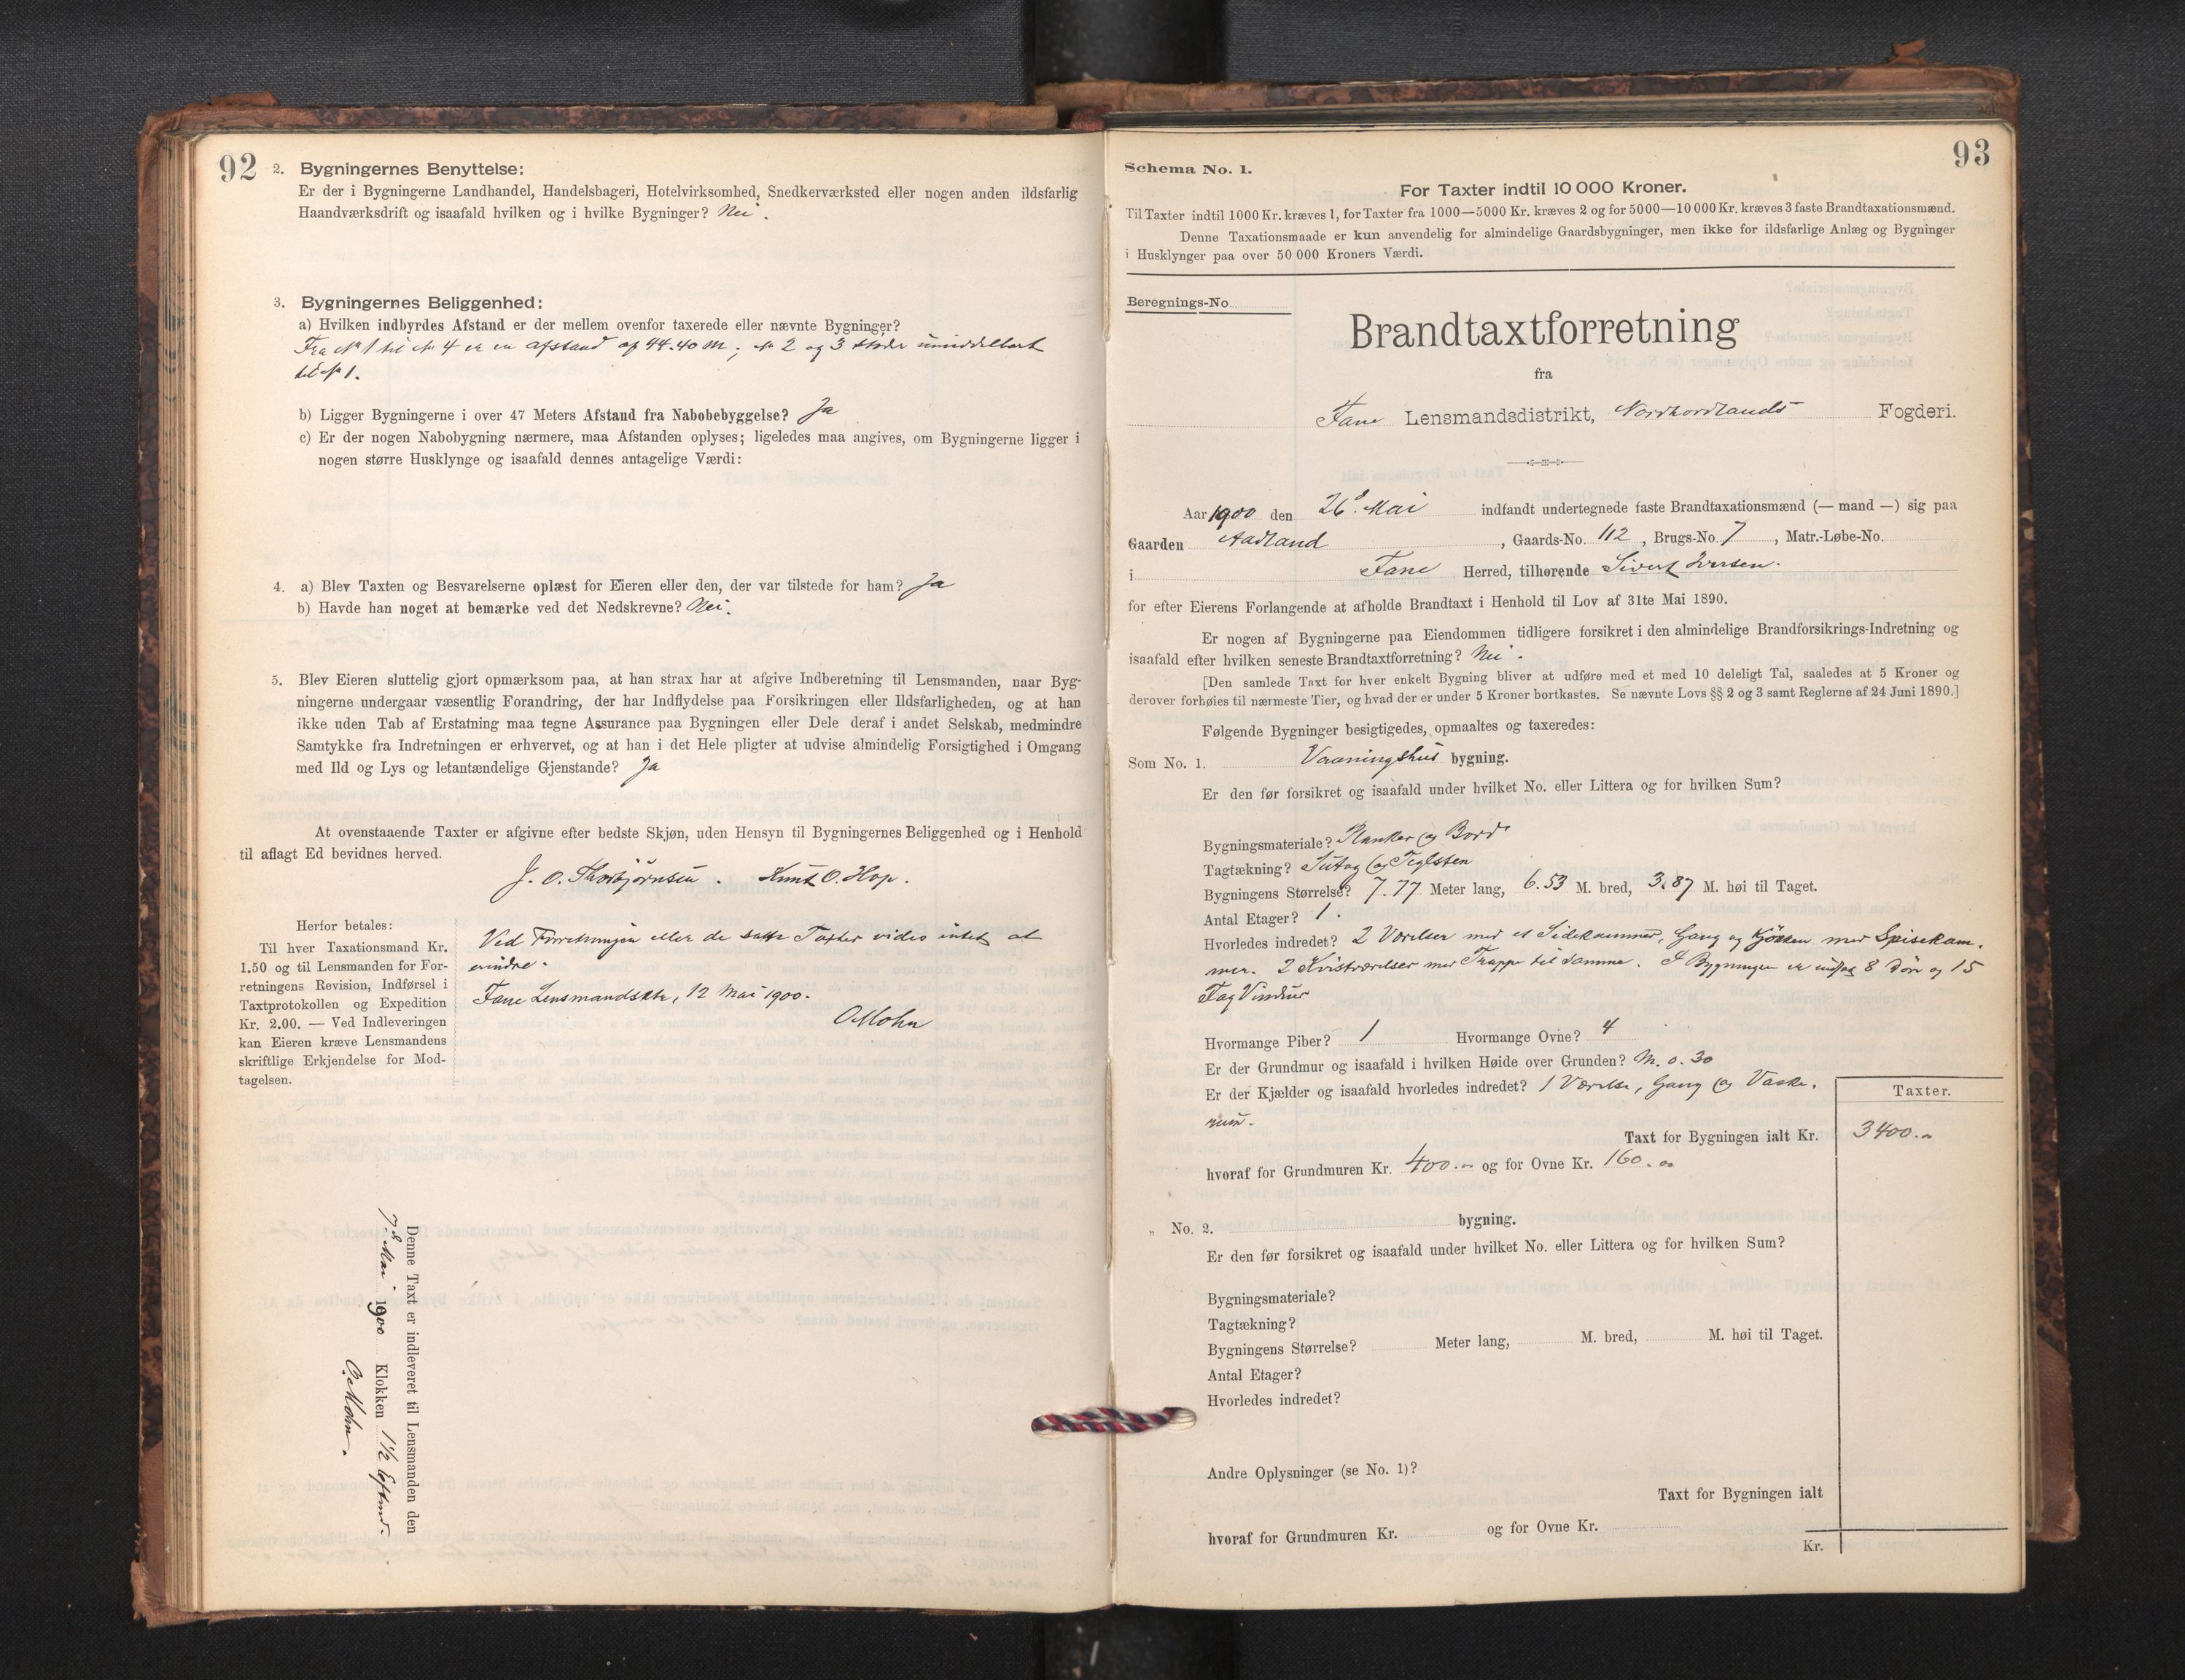 92
2. Bygningernes Benyttelse:
Er der i Bygningerne Landhandel, Handelsbageri, Hotelvirksomhed, Snedkerværksted eller nogen anden ildsfarlig
Haandværksdrift og isaafald hvilken og i hvilke Bygninger? Nei.
3. Bygningernes Beliggenhed:
a) Hvilken indbyrdes Afstand er der mellem ovenfor taxerede eller nævnte Bygninger?
Fra No 1 til No 4 er en afstand af 44.40 M; No 2 og 3 støder umiddelbart
til No 1.
b) Ligger Bygningerne i over 47 Meters Afstand fra Nabobebyggelse? Ja
c) Er der nogen Nabobygning nærmere, maa Afstanden oplyses; ligeledes maa angives, om Bygningerne ligger i
nogen større Husklynge og isaafald dennes antagelige Værdi:
4. a) Blev Taxten og Besvarelserne oplæst for Eieren eller den, der var tilstede for ham? Ja
b) Havde han noget at bemærke ved det Nedskrevne? Nei.
5. Blev Eieren sluttelig gjort opmærksom paa, at han strax har at afgive Indberetning til Lensmanden, naar Byg-
ningerne undergaar væsentlig Forandring, der har Indflydelse paa Forsikringen eller Ildsfarligheden, og at han
ikke uden Tab af Erstatning maa tegne Assurance paa Bygningen eller Dele deraf i andet Selskab, medmindre
Samtykke fra Indretningen er erhvervet, og at han i det Hele pligter at udvise almindelig Forsigtighed i Omgang
med Ild og Lys og letantændelige Gjenstande? Ja
At ovenstaaende Taxter er afgivne efter bedste Skjøn, uden Hensyn til Bygningernes Beliggenhed og i Henhold
til aflagt Ed bevidnes herved.
J. O. Thorbjörnsen. Knut O. Hop.
Herfor betales:
Til hver Taxationsmand Kr.
1.50 og til Lensmanden for For-
retningens Revision, Indførsel i
Taxtprotokollen og Expedition
Kr. 2.00. — Ved Indleveringen
kan Eieren kræve Lensmandens
skriftlige Erkjendelse for Mod-
tagelsen.
Ved Forretningen eller de satte Taxter vides intet at
erindre.
Fane Lensmandsktr, 12 Mai 1900.
O. Mohn
Denne Taxt er indleveret til Lensmanden den
7de Mai 1900 Klokken 1 1/2 Efterm.
O. Mohn.
93
Schema No. 1.
For Taxter indtil 10 000 Kroner.
Til Taxter indtil 1000 Kr. kræves 1, for Taxter fra 1000—5000 Kr. kræves 2 og for 5000—10 000 Kr. kræves 3 faste Brandtaxationsmænd.
Denne Taxationsmaade er kun anvendelig for almindelige Gaardsbygninger, men ikke for ildsfarlige Anlæg og Bygninger
i Husklynger paa over 50 000 Kroners Værdi.
Beregnings-No.
Brandtaxtforretning
fra
Fane Lensmandsdistrikt, Nordhordlands Fogderi.
Aar 1900 den 26d. Mai indfandt undertegnede faste Brandtaxationsmænd (— mand —) sig paa
Gaarden Aadland, Gaards-No. 112, Brugs-No. 7, Matr.-Løbe-No.
i Fane Herred, tilhørende Sivert Iversen.
for efter Eierens Forlangende at afholde Brandtaxt i Henhold til Lov af 31te Mai 1890.
Er nogen af Bygningerne paa Eiendommen tidligere forsikret i den almindelige Brandforsikrings-Indretning og
isaafald efter hvilken seneste Brandtaxtforretning? Nei.
[Den samlede Taxt for hver enkelt Bygning bliver at udføre med et med 10 deleligt Tal, saaledes at 5 Kroner og
derover forhøies til nærmeste Tier, og hvad der er under 5 Kroner bortkastes. Se nævnte Lovs §§ 2 og 3 samt Reglerne af 24 Juni 1890.]
Følgende Bygninger besigtigedes, opmaaltes og taxeredes:
Som No. 1. Vaaningshus bygning.
Er den før forsikret og isaafald under hvilket No. eller Littera og for hvilken Sum?
Bygningsmateriale? Planker og Bord
Tagtækning? Sutag og Teglsten
Bygningens Størrelse? 7.77 Meter lang, 6.53 M. bred, 3.87 M. høi til Taget.
Antal Etager? 1.
Hvorledes indredet? 2 Værelser med et Sidekammer, Gang og Kjökken med Spisekam-
mer. 2 Kvistværelser med Trappe til samme. I Bygningen er indsat 8 Döre og 15
Fag Vinduer
Hvormange Piber? 1 Hvormange Ovne? 4
Er der Grundmur og isaafald i hvilken Høide over Grunden? M. o. 30
Er der Kjælder og isaafald hvorledes indredet? 1 Værelse, Gang og Vaske-
rum.
Taxter.
Taxt for Bygningen ialt Kr. 3400.00
hvoraf for Grundmuren Kr. 400.00 og for Ovne Kr. 160.00
„ No. 2. bygning.
Er den før forsikret og isaafald under hvilket No. eller Littera og for hvilken Sum?
Bygningsmateriale?
Tagtækning?
Bygningens Størrelse? Meter lang, M. bred, M. høi til Taget.
Antal Etager?
Hvorledes indredet?
Andre Oplysninger (se No. 1)?
Taxt for Bygningen ialt
hvoraf for Grundmuren Kr. og for Ovne Kr.
Kr.